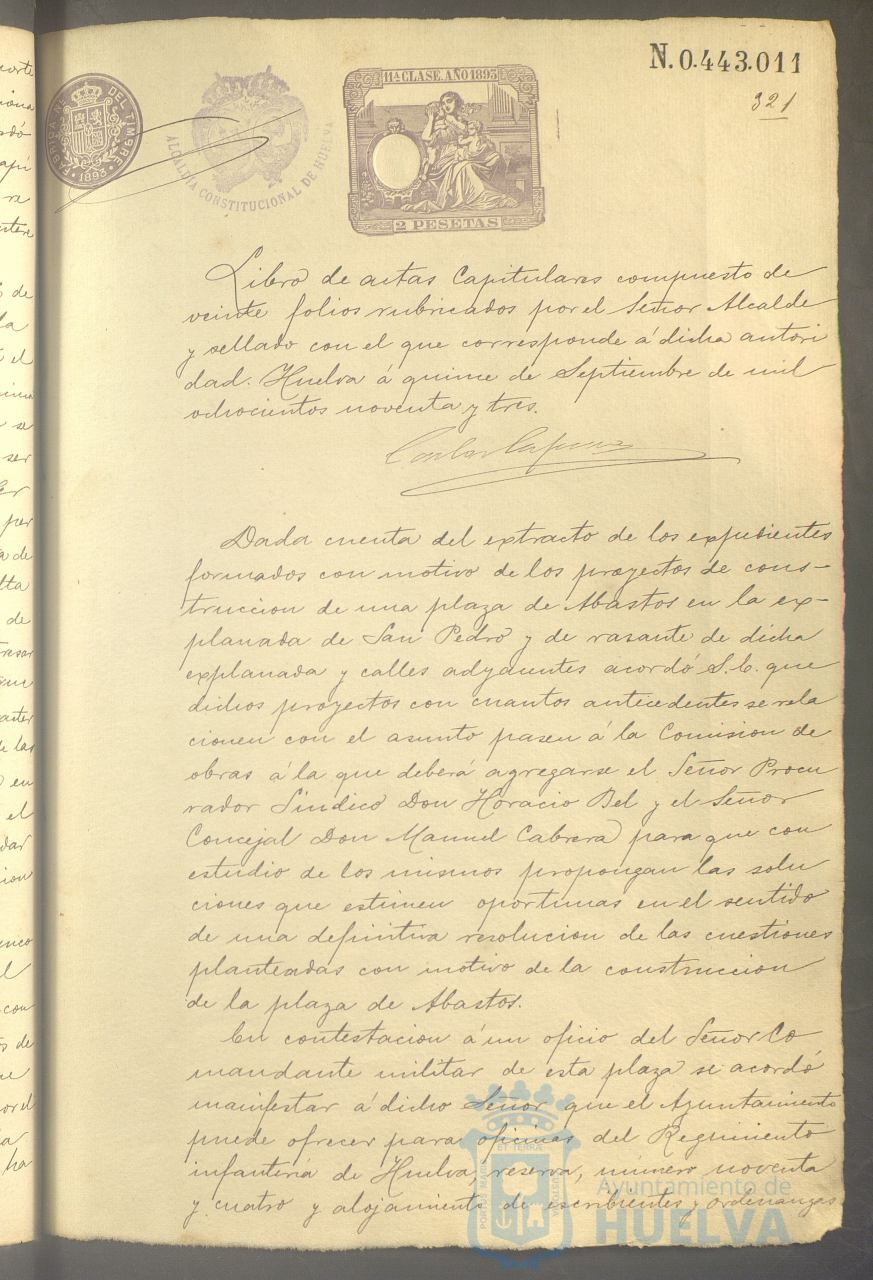 N.0.443.011
321
11ª CLASE. AÑO 1893
FABRICA N. DEL TIMBRE
1893
ALCALDIA CONSTITUCIONAL DE HUELVA
2 PESETAS
Libro de actas Capitulares compuesto de
veinte folios rubricados por el Señor Alcalde
y sellado con el que corresponde á dicha autori
dad. Huelva á quince de Septiembre de mil
ochocientos noventa y tres.
Dada cuenta del extracto de los expedientes
formados con motivo de los proyectos de cons-
truccion de una plaza de Abastos en la ex-
planada de San Pedro y de rasante de dicha
explanada y calles adyacentes acordó S.E. que
dichos proyectos con cuantos antecedentes se rela
cionen con el asunto pasen á la Comision de
obras á la que deberá agregarse el Señor Procu
rador Síndico Don Horacio Bel y el Señor
Concejal Don Manuel Cabrera para que con
estudio de los mismos propongan las solu
ciones que estimen oportunas en el sentido
de una definitiva resolucion de las cuestiones
planteadas con motivo de la construccion
de la plaza de Abastos.
En contestacion á un oficio del Señor Co
mandante militar de esta plaza se acordó
manifestar á dicho Señor que el Ayuntamiento
puede ofrecer para oficinas del Regimiento
infantería de Huelva, reserva, número noventa
y cuatro y alojamiento de escribientes y ordenanzas
Ayuntamiento de
HUELVA